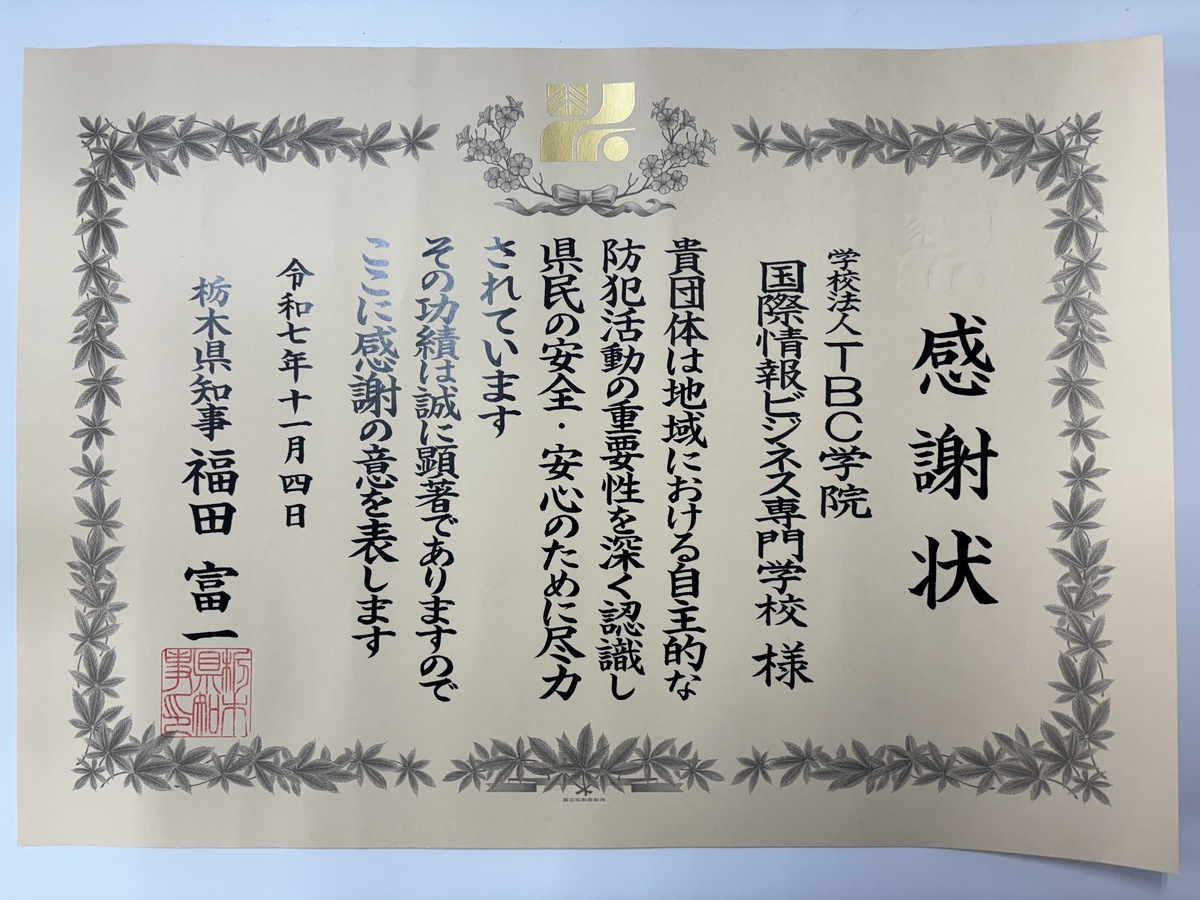 感謝状
学校法人TBC学院
国際情報ビジネス専門学校 様
貴団体は地域における自主的な
防犯活動の重要性を深く認識し
県民の安全・安心のために尽力
されています
その功績は誠に顕著でありますので
ここに感謝の意を表します
令和七年十一月四日
栃木県知事 福田 富一
栃木県知事印